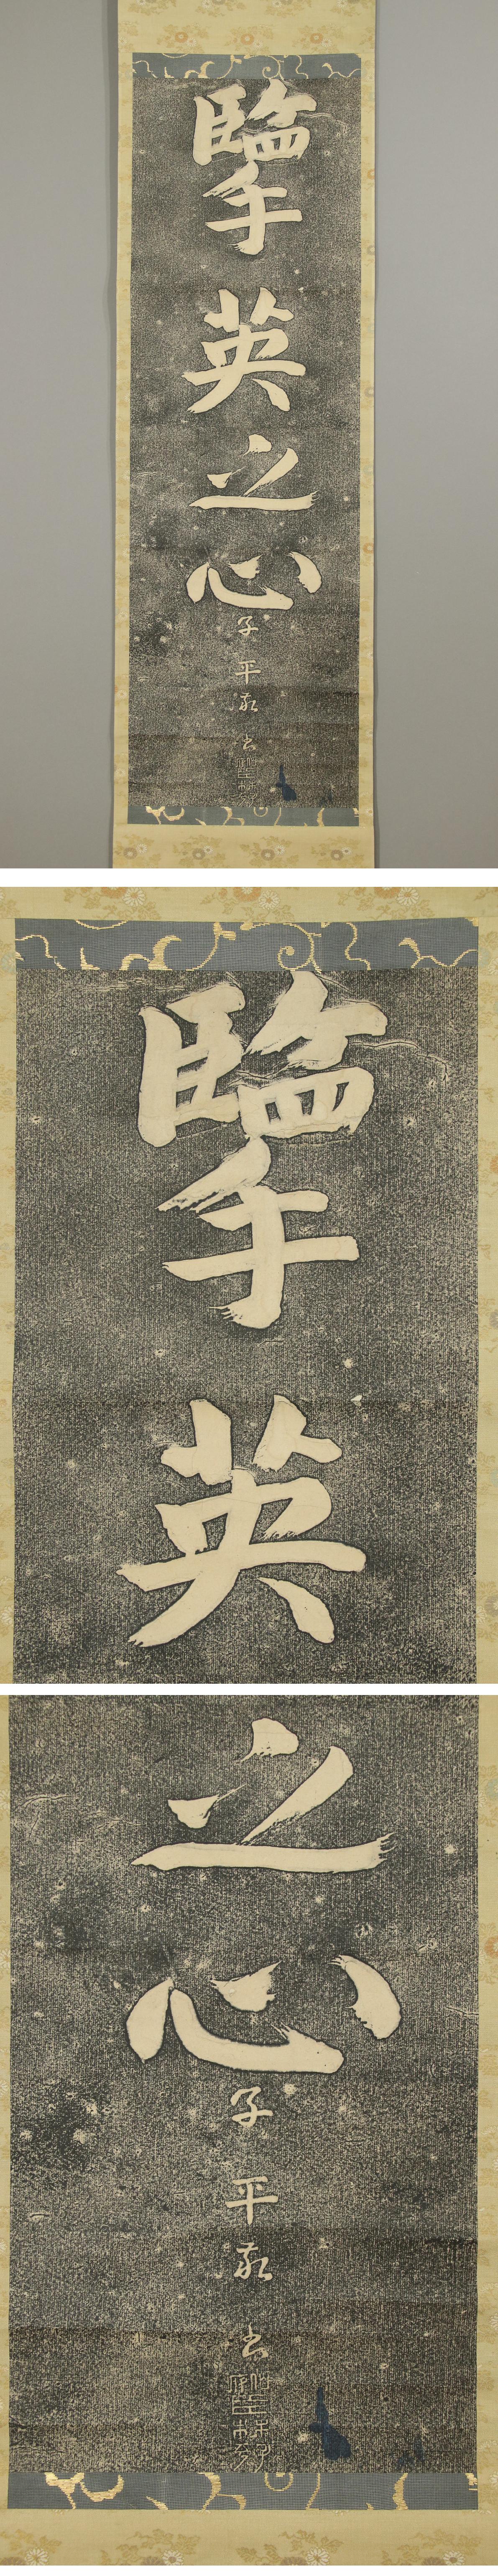 擥英之心
子平敬書
擥英
之心
子平敬書